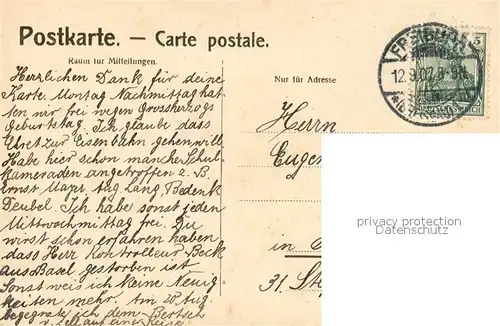 Postkarte. — Carte postale.
Raum für Mitteilungen.
Nur für Adresse
Herzlichen Dank für deine
Karte. Montag Nachmittag hat
ten wir frei wegen Grossherzogs
Geburtstag. Ich glaube dass
zur Eisenbahn gehen will
Habe hier schon manche Schul
kameraden angetroffen z. B.
Ernst Mayr, Aug. Lang, Bedenk
Deubel. Ich habe sonst jeden
Mittwochmittag frei. Du
wirst schon erfahren haben
dass Herr Kontrolleur Beck
aus Basel gestorben ist
Sonst weis ich keine Neuig
keiten mehr. Am 28. Aug.
begegnete ich dem Bertsch
v. Zell auf einer Reise
Herrn
Eugen
in
31. St
FREIBURG
12.9.07. 8-9N.
5
privacy protection
Datenschutz